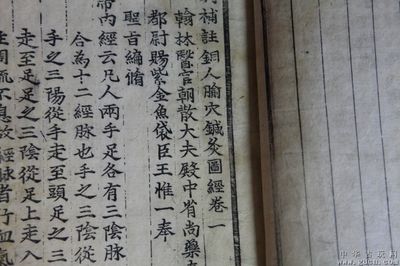 補註銅人腧穴鍼灸圖經卷一
翰林醫官朝散大夫殿中省尚藥
都尉賜紫金魚袋臣王惟一奉
聖旨編脩
帝內經云凡人兩手足各有三陰脉
合爲十二經脉也手之三陰從
手之三陽從手走至頭足之三
走至足足之三陰從足上走入
周流不息故經脉者行血氣
中华古玩网
www.gdcn.com